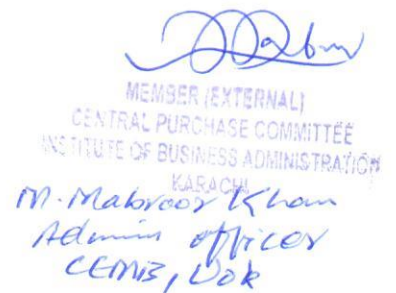 MEMBER (EXTERNAL)
CENTRAL PURCHASE COMMITTEE
INSTITUTE OF BUSINESS ADMINISTRATION
KARACHI
M. Mabroor Khan
Admin officer
CEMB, UoK